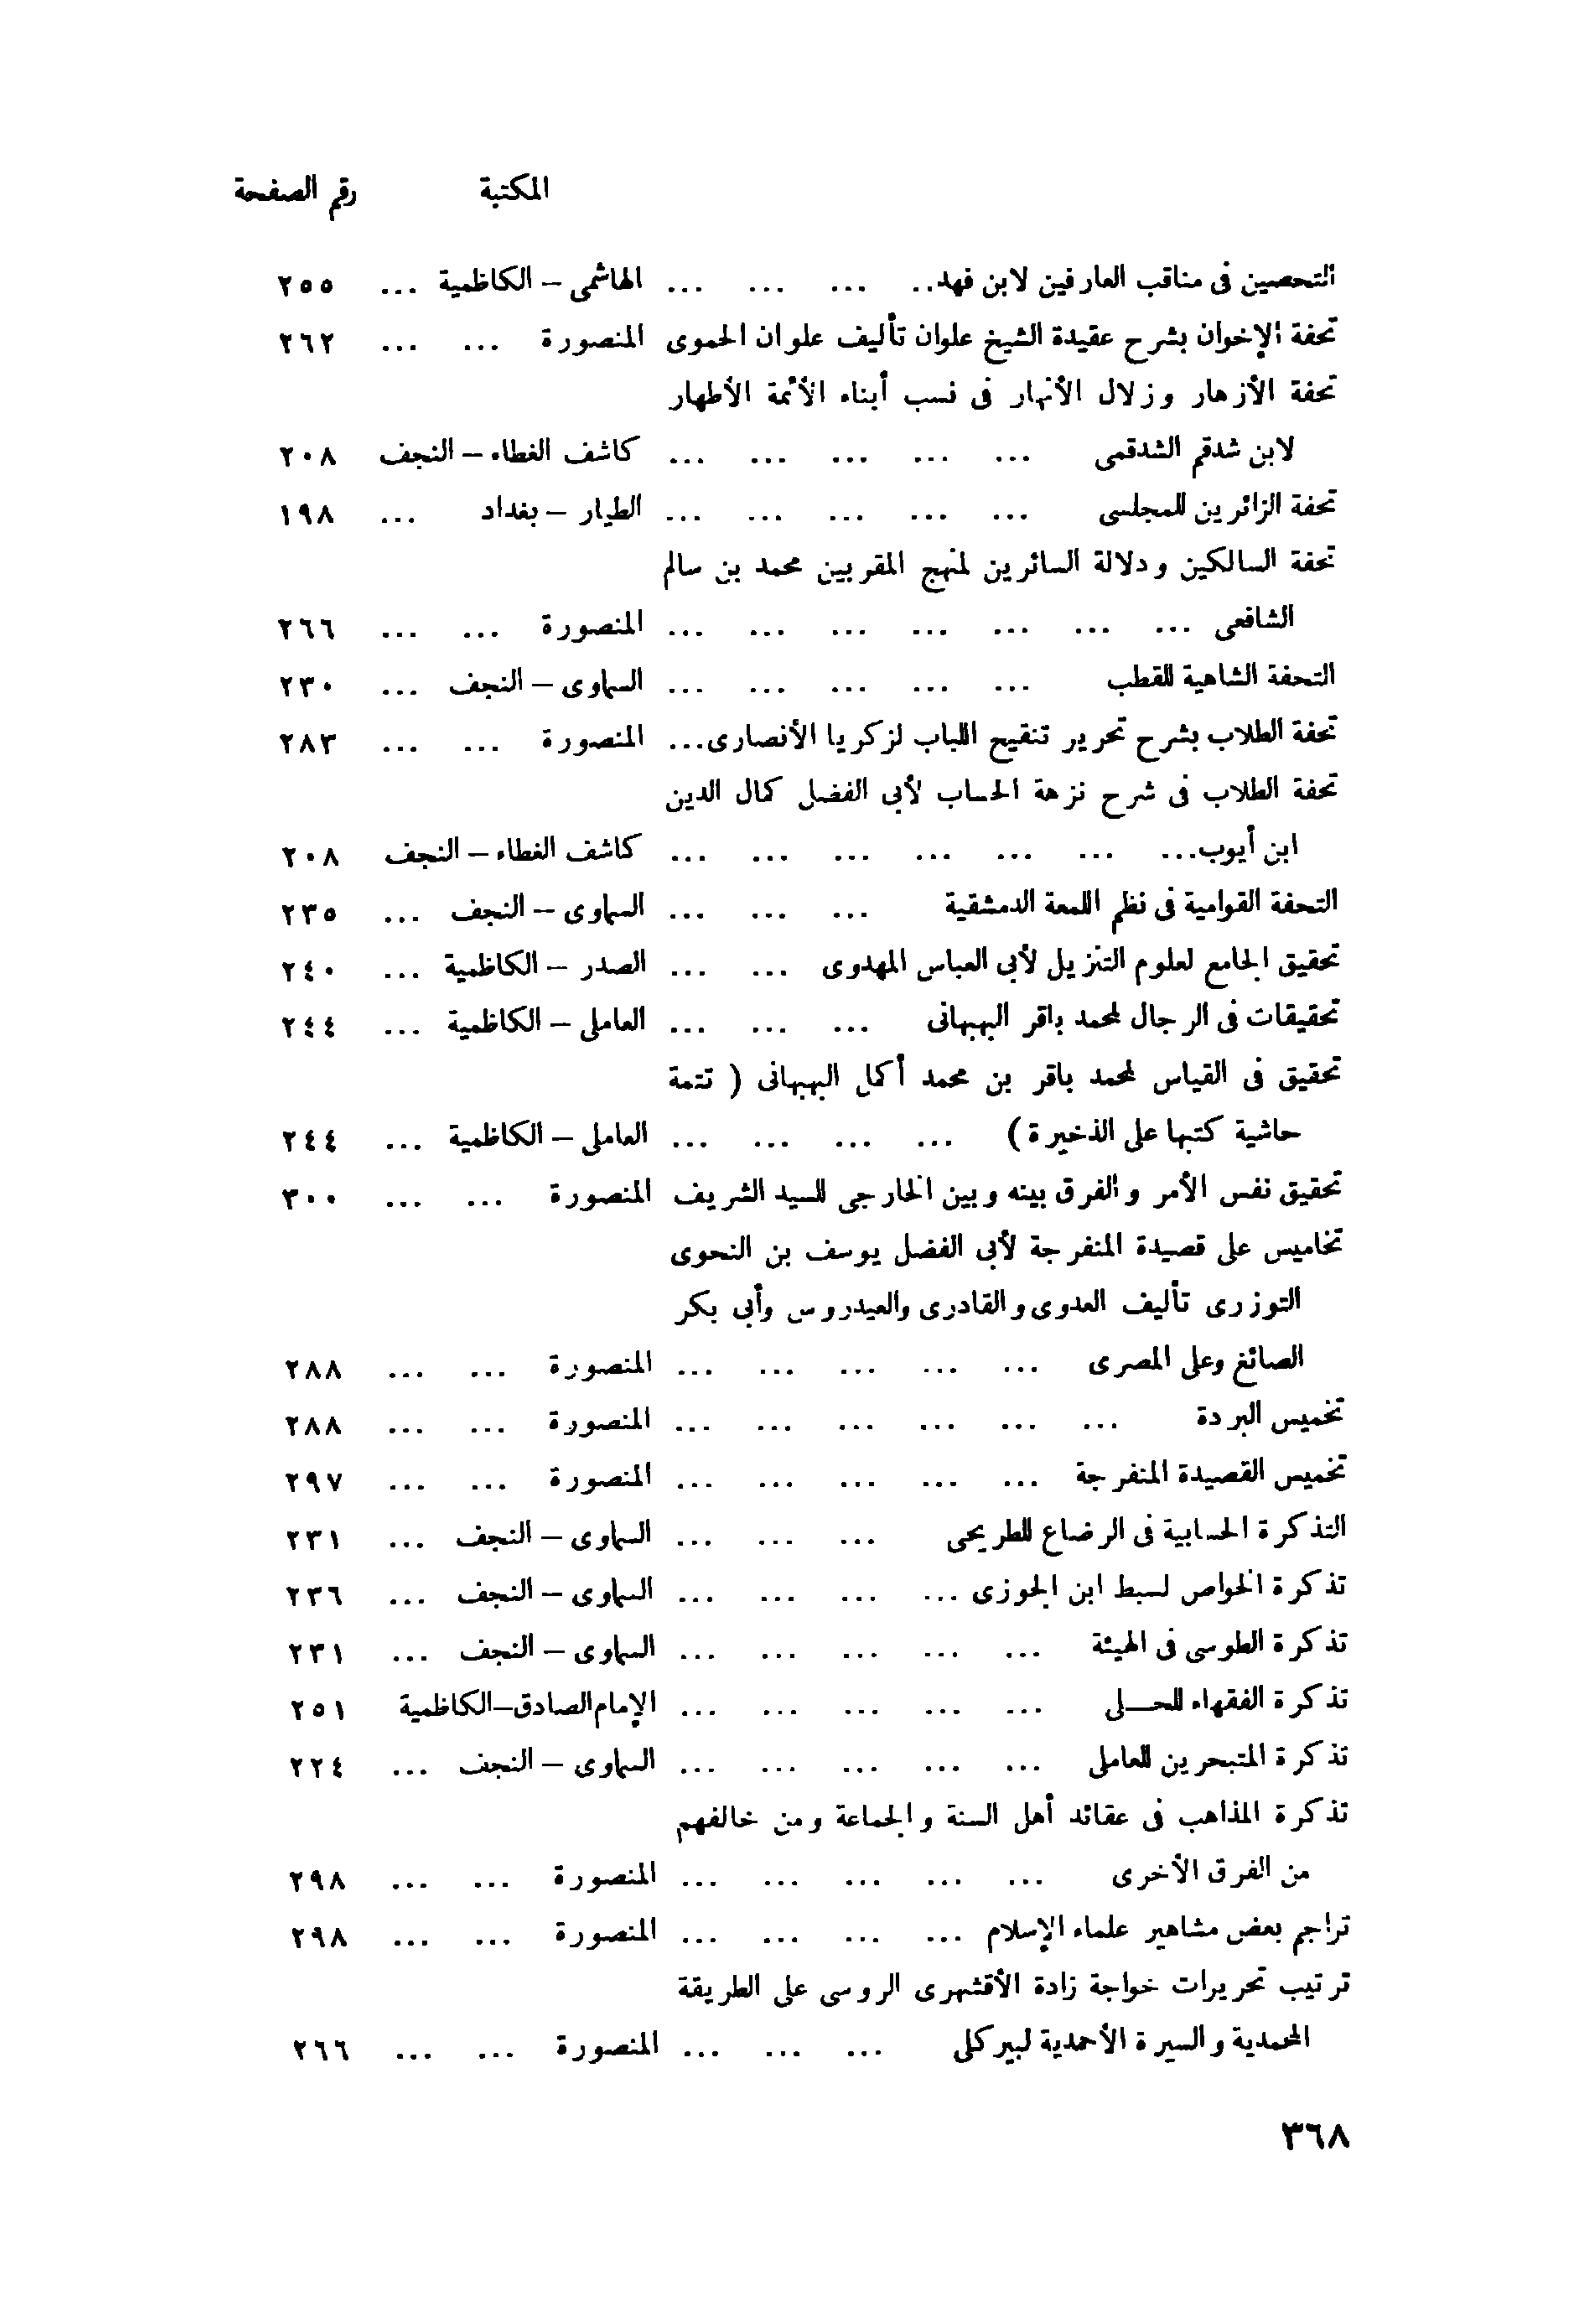 المكتبة رقم الصفحة
التحصين فى مناقب العارفين لابن فهد.. ... ... ... الهاشمى – الكاظمية ... ٢٥٥
تحفة الإخوان بشرح عقيدة الشيخ علوان تأليف علوان الحموى المنصورة ... ... ٢٦٢
تحفة الأزهار وزلال الأنهار فى نسب أبناء الأئمة الأطهار
لابن شدقم الشدقمى ... ... ... ... ... كاشف الغطاء – النجف ٢٠٨
تحفة الزائرين للمجلسى ... ... ... ... ... الطيار – بغداد ... ١٩٨
تحفة السالكين ودلالة السائرين لمنهج المقربين محمد بن سالم
الشافعى ... ... ... ... ... ... ... المنصورة ... ... ٢٦٦
التحفة الشاهية للقطب ... ... ... ... ... السماوى – النجف ... ٢٣٠
تحفة الطلاب بشرح تحرير تنقيح اللباب لزكريا الأنصارى... ... المنصورة ... ... ٢٨٣
تحفة الطلاب فى شرح نزهة الحساب لأبى الفضل كمال الدين
ابن أيوب... ... ... ... ... ... ... كاشف الغطاء – النجف ٢٠٨
التحفة القوامية فى نظم اللمعة الدمشقية ... ... ... السماوى – النجف ... ٢٣٥
تحقيق الجامع لعلوم التنزيل لأبى العباس المهدوى ... ... الصدر – الكاظمية ... ٢٤٠
تحقيقات فى الرجال لمحمد باقر البهبهانى ... ... ... العاملى – الكاظمية ... ٢٤٤
تحقيق فى القياس لمحمد باقر بن محمد أكمل البهبهانى ( تتمة
حاشية كتبها على الذخيرة ) ... ... ... ... العاملى – الكاظمية ... ٢٤٤
تحقيق نفس الأمر والفرق بينه وبين الخارجى للسيد الشريف المنصورة ... ... ٣٠٠
تخاميس على قصيدة المنفرجة لأبى الفضل يوسف بن النحوى
التوزرى تأليف العدوى والقادرى والعيدروس وأبى بكر
الصائغ وعلى المصرى ... ... ... ... ... المنصورة ... ... ٢٨٨
تخميس البردة ... ... ... ... ... ... المنصورة ... ... ٢٨٨
تخميس القصيدة المنفرجة ... ... ... ... ... المنصورة ... ... ٢٩٧
التذكرة الحسابية فى الرضاع للطريحى ... ... ... السماوى – النجف ... ٢٣١
تذكرة الخواص لسبط ابن الجوزى ... ... ... ... السماوى – النجف ... ٢٣٦
تذكرة الطوسى فى الهيئة ... ... ... ... ... السماوى – النجف ... ٢٣١
تذكرة الفقهاء للحــلى ... ... ... ... ... الإمام الصادق–الكاظمية ٢٥١
تذكرة المتبحرين للعاملى ... ... ... ... ... السماوى – النجف ... ٢٢٤
تذكرة المذاهب فى عقائد أهل السنة والجماعة ومن خالفهم
من الفرق الأخرى ... ... ... ... ... المنصورة ... ... ٢٩٨
تراجم بعض مشاهير علماء الإسلام ... ... ... ... المنصورة ... ... ٢٩٨
ترتيب تحريرات خواجة زادة الأقشهرى الروسى على الطريقة
المحمدية والسيرة الأحمدية لبيركلى ... ... ... المنصورة ... ... ٢٦٦
٣٦٨